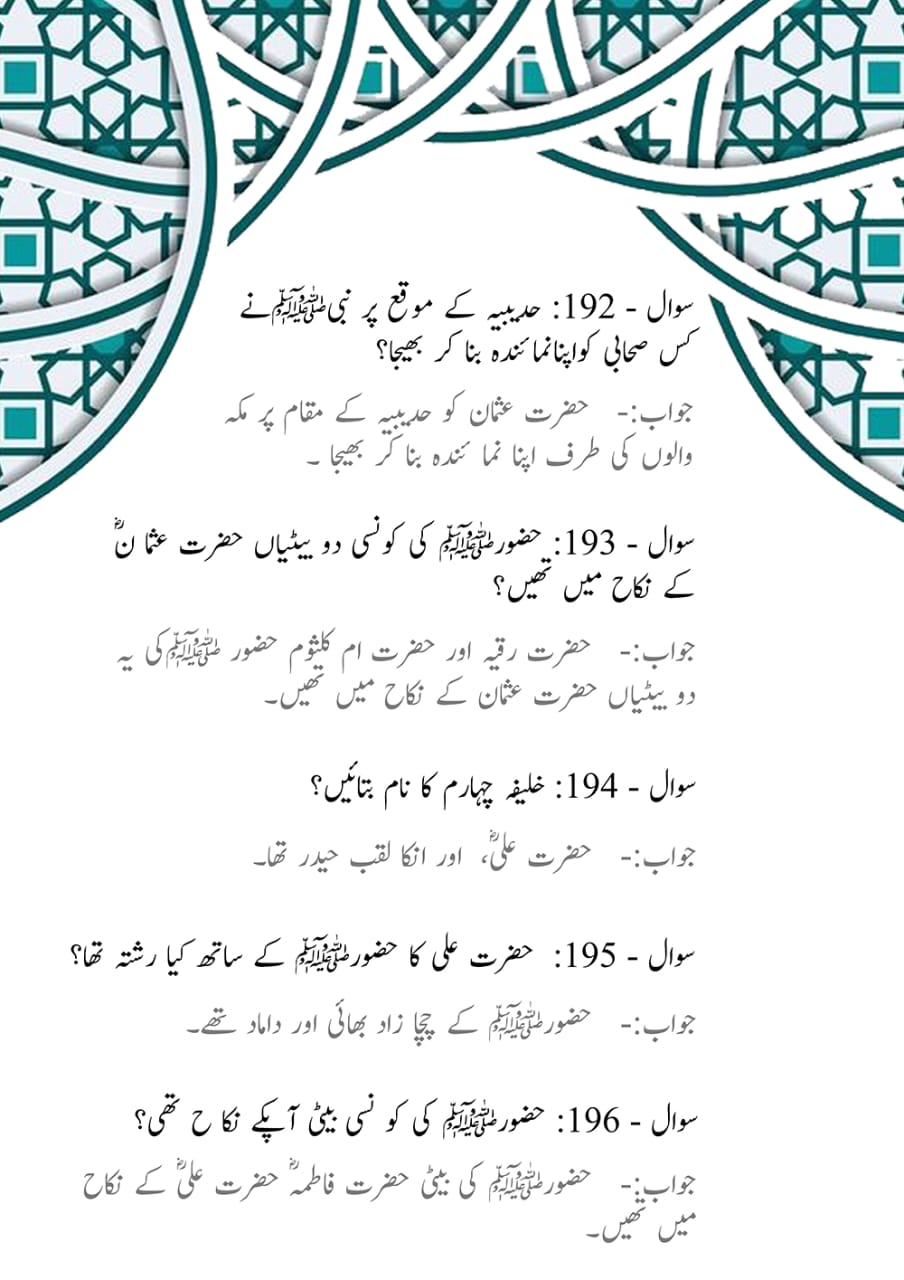 سوال - 192: حدیبیہ کے موقع پر نبیﷺنے
کس صحابی کواپنانمائندہ بنا کر بھیجا؟
جواب:- حضرت عثمان کو حدیبیہ کے مقام پر مکہ
والوں کی طرف اپنا نما ئندہ بنا کر بھیجا ۔
سوال - 193: حضورﷺ کی کونسی دو بیٹیاں حضرت عثما نؓ
کے نکاح میں تھیں؟
جواب:- حضرت رقیہ اور حضرت ام کلثوم حضور ﷺکی یہ
دو بیٹیاں حضرت عثمان کے نکاح میں تھیں۔
سوال - 194: خلیفہ چہارم کا نام بتائیں؟
جواب:- حضرت علیؓ، اور انکا لقب حیدر تھا۔
سوال - 195: حضرت علی کا حضورﷺ کے ساتھ کیا رشتہ تھا؟
جواب:- حضورﷺ کے چچا زاد بھائی اور داماد تھے۔
سوال - 196: حضورﷺ کی کو نسی بیٹی آپکے نکا ح تھی؟
جواب:- حضورﷺ کی بیٹی حضرت فاطمہؓ حضرت علیؓ کے نکاح
میں تھیں۔